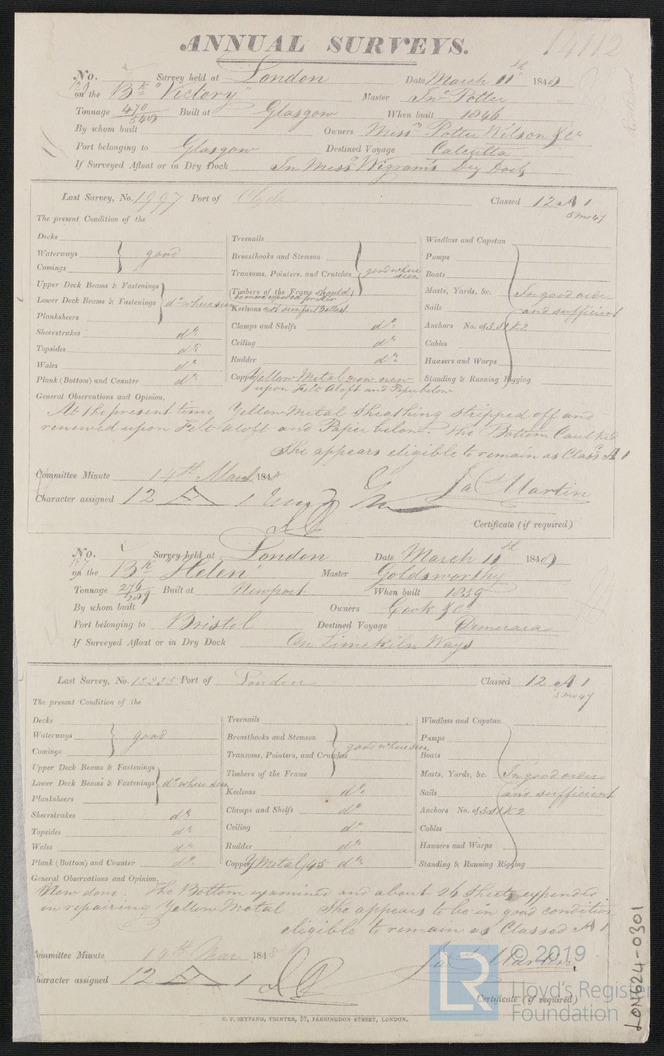 14112
ANNUAL SURVEYS.
No. Survey held at London Date March 11th 184
on the Bk "Victory" Master Jno Potter
Tonnage 470 Built at Glasgow When built 1846
By whom built Owners Messrs Potter Wilson & Co
Port belonging to Glasgow Destined Voyage Calcutta
If Surveyed Afloat or in Dry Dock In Messrs Wigrams Dry Dock
Last Survey, No. 1997 Port of Clyde Classed 12 A 1
5 mo 47
The present Condition of the
Decks
Waterways good
Comings
Upper Deck Beams & Fastenings
Lower Deck Beams & Fastenings do where seen
Planksheers
Sheerstrakes do
Topsides do
Wales do
Plank (Bottom) and Counter do
Treenails
Breasthooks and Stemson
Transoms, Pointers, and Crutches good where seen
Timbers of the Frame
Keelsons
Clamps and Shelfs do
Ceiling do
Rudder do
Copper Yellow Metal now new
upon Felt Aloft and Paper below
Windlass and Capstan
Pumps
Boats
Masts, Yards, &c. In good order
Sails and sufficient
Anchors No. of
Cables
Hawsers and Warps
Standing & Running Rigging
General Observations and Opinion,
At the present time, Yellow Metal Sheathing stripped off and
renewed upon Felt aloft and Paper below. The Bottom Caulked
She appears eligible to remain as Classed A 1
Committee Minute 14th March 184
Character assigned 12 A 1
Jas Martin
Certificate (if required)
No. Survey held at London Date March 11th 184
on the Bk "Helen" Master Goldsworthy
Tonnage 276 Built at Newport When built 1839
By whom built Owners Cook & Co
Port belonging to Bristol Destined Voyage Demerara
If Surveyed Afloat or in Dry Dock On Limekiln Ways
Last Survey, No. 12235 Port of London Classed 12 A 1
5 mo 47
The present Condition of the
Decks
Waterways good
Comings
Upper Deck Beams & Fastenings
Lower Deck Beams & Fastenings do where seen
Planksheers
Sheerstrakes do
Topsides do
Wales do
Plank (Bottom) and Counter do
Treenails
Breasthooks and Stemson
Transoms, Pointers, and Crutches good where seen
Timbers of the Frame
Keelsons do
Clamps and Shelfs do
Ceiling do
Rudder do
Copper Y Metal / 45 do
Windlass and Capstan
Pumps
Boats
Masts, Yards, &c. In good order
Sails and sufficient
Anchors No. of
Cables
Hawsers and Warps
Standing & Running Rigging
General Observations and Opinion,
Now done. The Bottom examined and about 26 Sheets expended
in repairing Yellow Metal She appears to be in good condition
eligible to remain as Classed A 1
Committee Minute 14th Mar 184
Character assigned 12 A 1
Jas Martin
Certificate (if required)
C. F. SEYFANG, PRINTER, 57, FARRINGDON STREET, LONDON.
LR © 2019
Lloyd's Register
Foundation
LON624-0301